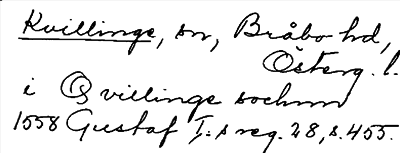 Kvillinge, sn, Bråbo hd,
Österg. l.
i Qvillinge sochnn
1558 Gustaf I:s reg. 28, s. 455.